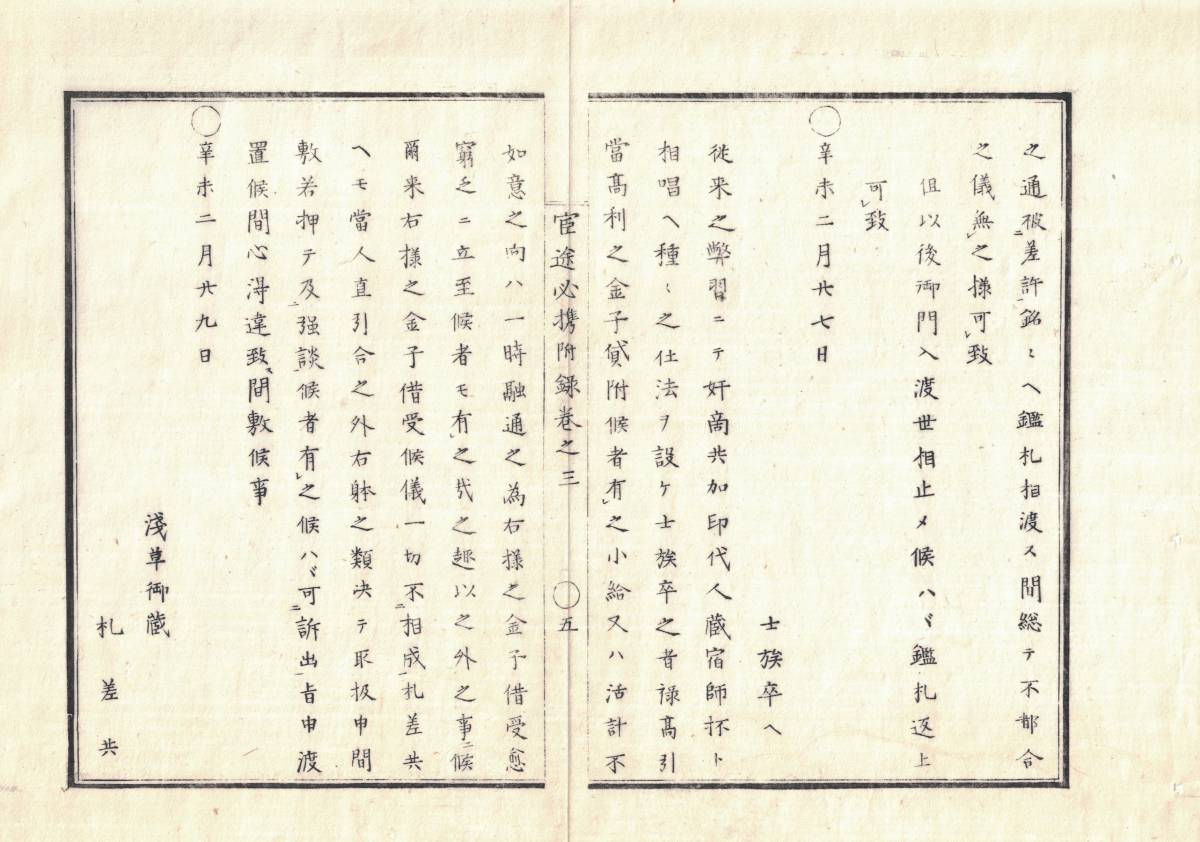 之通被差許銘〻ヘ鑑札相渡ス間総テ不都合
之儀無之様可致
但以後御門入渡世相止メ候ハヾ鑑札返上
可致
○
辛未二月廿七日
士族卒ヘ
従来之弊習ニテ奸商共加印代人蔵宿師抔ト
相唱ヘ種〻之仕法ヲ設ケ士族卒之者禄高引
當高利之金子貸附候者有之小給又ハ活計不
宦途必携附録巻之三 ○五
如意之向ハ一時融通之為右様之金子借受愈
窮乏ニ立至候者モ有之哉之趣以之外之事ニ候
爾来右様之金子借受候儀一切不相成札差共
ヘモ當人直引合之外右躰之類决テ取扱申間
敷若押テ及强談候者有之候ハヾ可訴出旨申渡
置候間心淂違致間敷候事
○
辛未二月廿九日
淺草御蔵
札差共